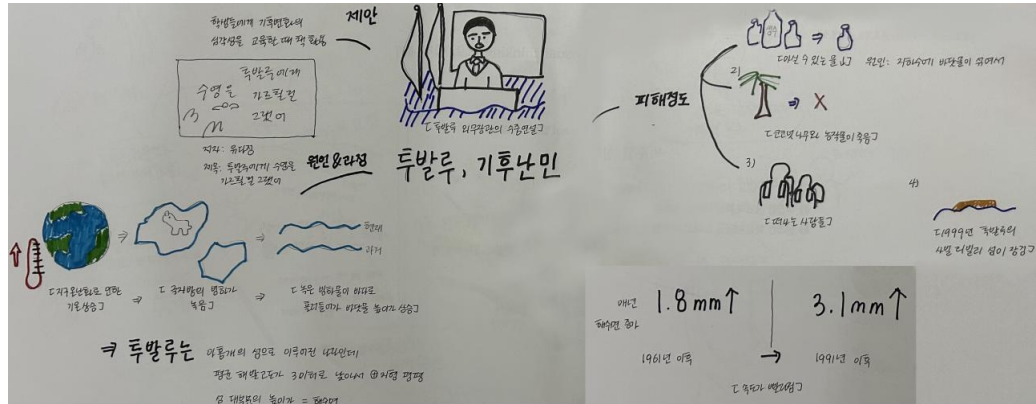 제안
학생들에게 기후변화의
심각성을 교육할 때 책 활용
투발루에게
수영을 가르칠걸
그랬어
저자: 유다정
제목: 투발루에게 수영을
가르칠걸 그랬어
[투발루 외무장관의 수중연설]
투발루, 기후난민
원인&과정
[지구온난화로 인한
기온상승]
[극지방의 빙하가
녹음]
현재
과거
[녹은 빙하물이 바다로
흘러들어가 바닷물 높이가 상승]
⇒ 투발루는 아홉개의 섬으로 이루어진 나라인데
평균 해발고도가 3미터로 낮아서 ⊕지형 평평
섬 대부분의 높이가 = 해수면
피해정도
[마실 수 있는 물↓] 원인: 지하수에 바닷물이 섞여서
2)
⇒ X
[코코넛 나무와 농작물이 죽음]
3)
[떠나는 사람들]
4)
[1999년 투발루의
사빌리빌리 섬이 잠김]
매년
해수면 증가
1.8mm↑
3.1mm↑
1961년 이후 → 1991년 이후
[속도가 빨라짐]